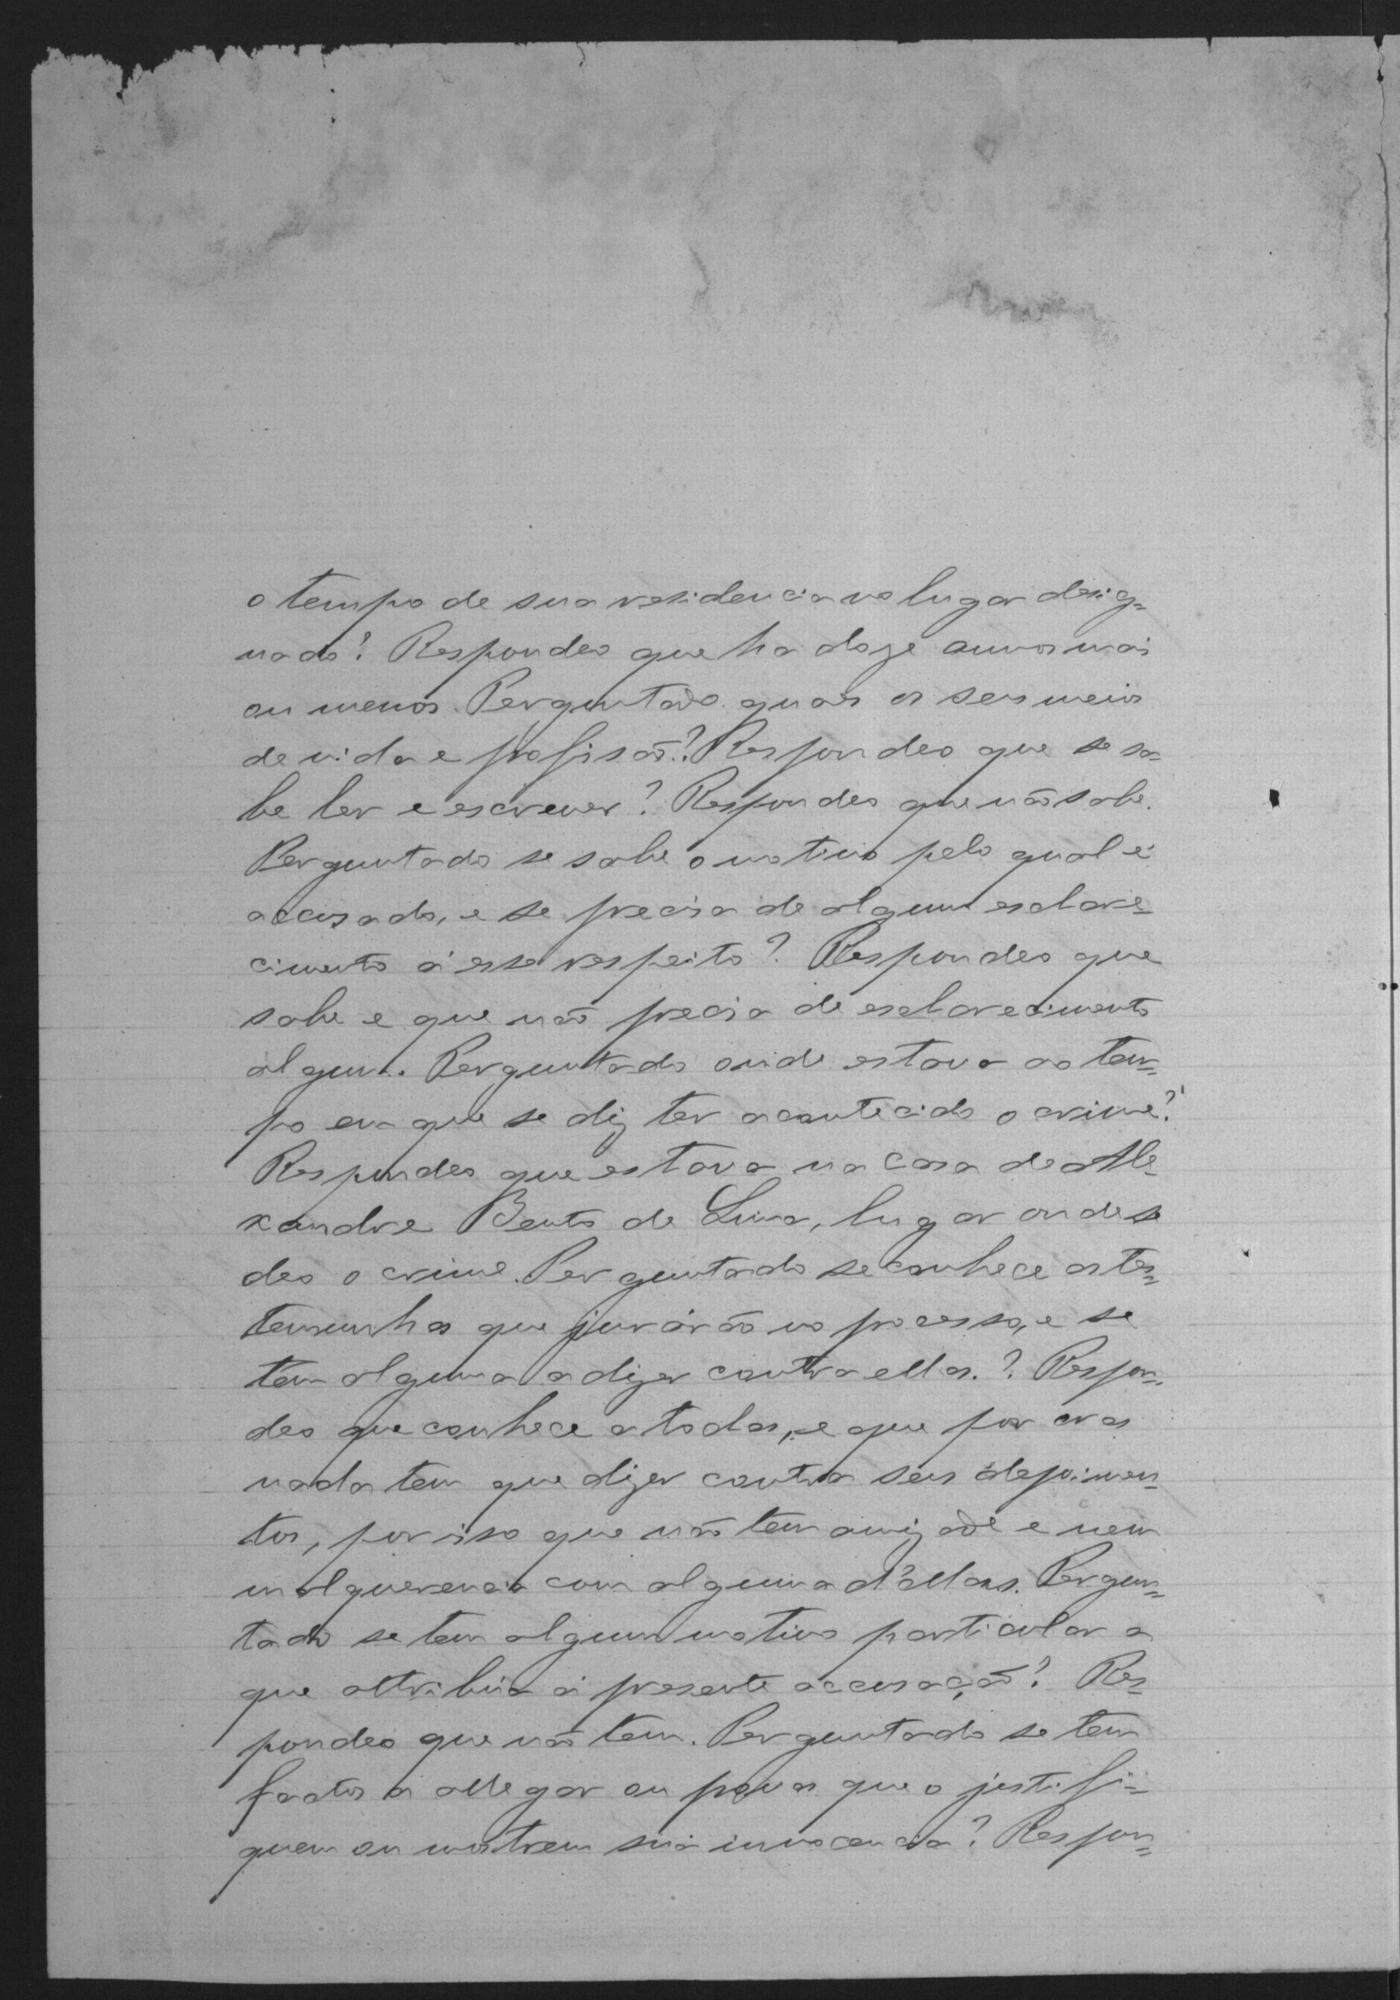 o tempo de sua residencia no lugar desig=
nado? Respondeo que ha doze annos mais
ou menos. Perguntado quaes os seus meios
de vida e profisão? Respondeo que se sa=
be ler e escrever? Respondeo que não sabe.
Perguntado se sabe o motivo pelo qual é
accusado, e se precisa de algum esclare=
cimento á esse respeito? Respondeo que
sabe e que não precisa de esclarecimento
algum. Perguntado onde estava ao tem=
po em que se diz ter acontecido o crime?
Respondeo que estava na casa de Ale=
xandre Bento de Lima, lugar onde se
deo o crime. Perguntado se conhece as tes=
temunhas que jurárão no processo, e se
tem alguma a dizer contra ellas.? Respon=
deo que conhece a todas, e que por ora
nada tem que dizer contra seus depoimen=
tos, por isso que não tem amizade e nem
malquerencia com alguma d'ellas. Pergun=
tado se tem algum motivo particular a
que attribúa á presente accusação? Res=
pondeo que não tem. Perguntado se tem
factos a allegar ou provas que o justifi=
quem ou mostrem sua innocencia? Respon=